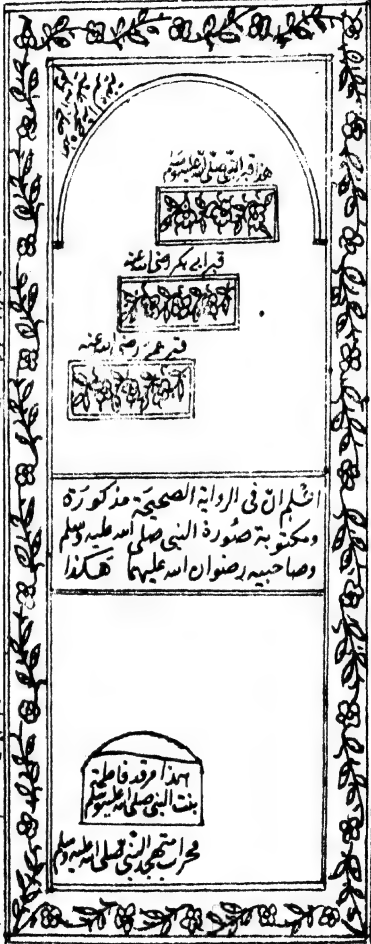 هذا قبر النبي صلى الله عليه وسلم
قبر ابي بكر رضى الله عنه
قبر عمر رضى الله عنه
اعلم ان فى الرواية الصحيحة مذكورة
ومكتوبة صورة النبي صلى الله عليه وسلم
وصاحبيه رضوان الله عليهما هكذا
هذا مرقد فاطمة
بنت النبى صلى الله عليه وسلم
محراب تهجد النبي صلى الله عليه وسلم